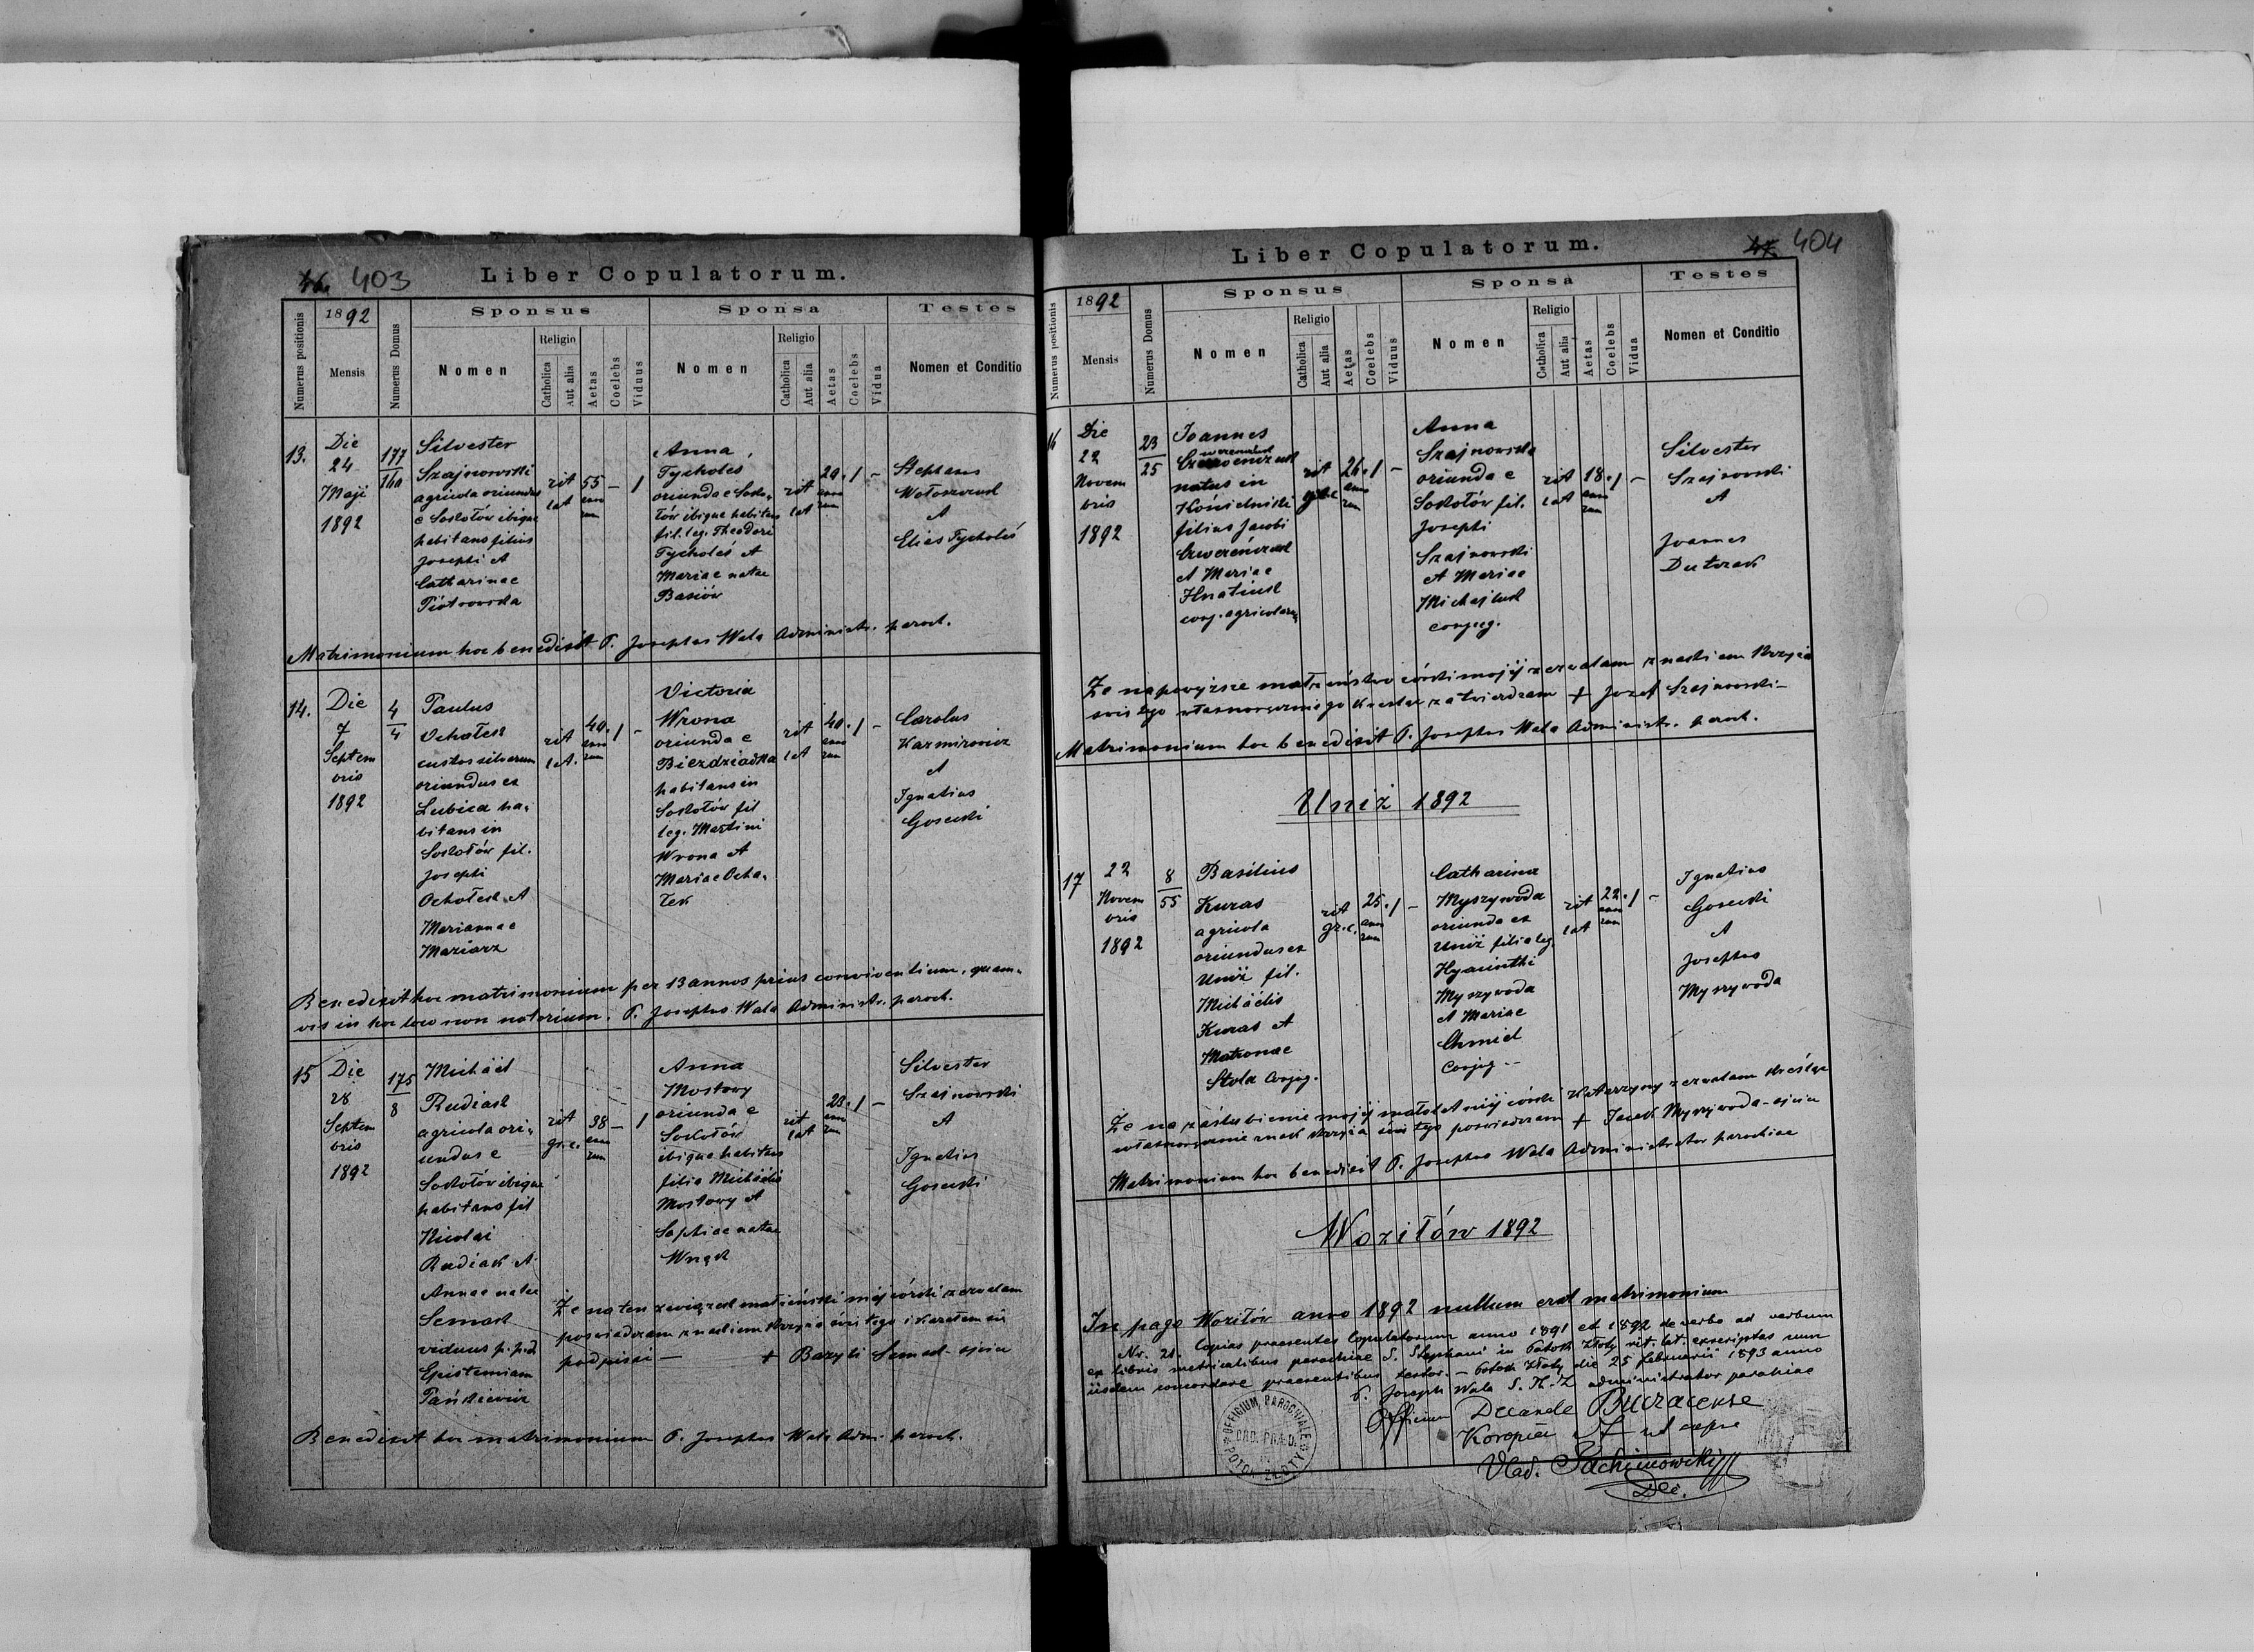 403
Liber Copulatorum.
Numerus positionis
1892
Mensis
Numerus Domus
Sponsus
Nomen
Religio
Catholica
Aut alia
Aetas
Coelebs
Viduus
Sponsa
Nomen
Religio
Catholica
Aut alia
Aetas
Coelebs
Vidua
Testes
Nomen et Conditio
13.
Die
24
Maji
1892
177
160
Silvester
Szajnowski
agricola oriundus
e Sokołów ibique
habitans filius
Josephi et
Catharinae
Piotrowska
rit
lat
55
anno
rum
—
1
Anna
Tycholes
oriunda e Soko-
łów ibique habitans
fil. leg. Theodori
Tycholés et
Mariae natae
Basiów
rit
lat
29.
anno
rum
1
–
Stephanus
Wołoszczuk
et
Elias Tycholés
Matrimonium hoc benedixit P. Josephus Wala Administr. paroch.
14.
Die
7
Septem
bris
1892
4
4
Paulus
Ochałek
custos silvarum
oriundus ex
Lubica ha-
bitans in
Sokołów fil.
Josephi
Ochałek et
Mariannae
Maziarz
rit
lat.
40.
anno
rum
1
–
Victoria
Wrona
oriunda e
Biezdziadka
habitans in
Sokołów fil
leg. Martini
Wrona et
Mariae Ocha-
łek
rit
lat
40.
anno
rum
1
–
Carolus
Kazmirowicz
et
Ignatius
Gosecki
Benedixit hoc matrimonium per 13 annos prius conviventium, quam-
vis in hoc loco non notorium. P. Josephus Wala Administr. paroch.
15
Die
28
Septem
bris
1892
175
8
Michäel
Rudiak
agricola ori-
undus e
Sokołów ibique
habitans fil
Nicolai
Rudiak et
Annae natae
Semak
viduus p. p. d.
Epistemiam
Pańkiewicz
rit
gr. c.
38
anno
rum
—
1
Anna
Mostowy
oriunda e
Sokołów
ibique habitans
filia Michäelis
Mostowy et
Sophiae natae
Wnęk
rit
lat
23.
anno
rum
1
–
Silvester
Szajnowski
et
Ignatius
Gosecki
Że na ten związek małżeński mej córki zezwalam
poświadczam znakiem krzyża świętego i kazałem się
podpisać — + Bazyli Semak - ojciec
Benedixit hoc matrimonium P. Josephus Wala Adm. paroch.
404
Liber Copulatorum.
Numerus positionis
1892
Mensis
Numerus Domus
Sponsus
Nomen
Religio
Catholica
Aut alia
Aetas
Coelebs
Viduus
Sponsa
Nomen
Religio
Catholica
Aut alia
Aetas
Coelebs
Vidua
Testes
Nomen et Conditio
16
Die
22
Novem
bris
1892
23
25
Joannes
natus in
Kościelniki
filius Jacobi
Czwereńczuk
et Mariae
Hnatiuk
conj. agricolarum
rit
gr. c
26.
anno
rum
1
–
Anna
Szajnowska
oriunda e
Sokołów fil.
Josephi
Szajnowski
et Mariae
Michajluk
conjug.
rit
lat
18.
anno
rum
1
–
Silvester
Szajnowski
et
Joannes
Dutczak
Że na powyższe małżeństwo córki mojéj zezwalam znakiem krzyża
świętego własnoręcznie go kreśląc zatwierdzam + Józef Szajnowski -
Matrimonium hoc benedixit P. Josephus Wala Administr. paroch.
Uniż 1892
17
22
Novem
bris
1892
8
55
Basilius
Kuras
agricola
oriundus ex
Uniż fil.
Michäelis
Kuras et
Matronae
Stola Conjug.
rit
gr. c.
25.
anno
rum
1
–
Catharina
Myszywoda
oriunda ex
Uniż filia leg
Hyacinthi
Myszywoda
et Mariae
Chmiel
Conjug. –
rit
lat
22.
anno
rum
1
–
Ignatius
Gosecki
et
Josephus
Myszywoda
Że na zaślubienie mojéj małoletniéj córki Katarzyny zezwalam kreśląc
własnoręcznie znak krzyża świętego poświadczam + Jacek Myszywoda - ojciec
Matrimonium hoc benedixit P. Josephus Wala Administrator parochiae
Woziłów 1892
In pago Woziłów anno 1892 nullum erat matrimonium
Nr. 21. Copias praesentes Copulatorum anno 1891 et 1892 de verbo ad verbum
ex libris metricalibus parochiae S. Stephani in Potok Złoty rit. lat. exscriptas cum
iisdem concordare praesentibus testor. – Potok Złoty die 25 februarii 1893 anno
P. Joseph Wala administrator parochiae
Officium Decanale Buczacense
Koropiec ut supra
Vlad.
Dec.
OFFICIUM PAROCHIALE
POTOK ZŁOTY